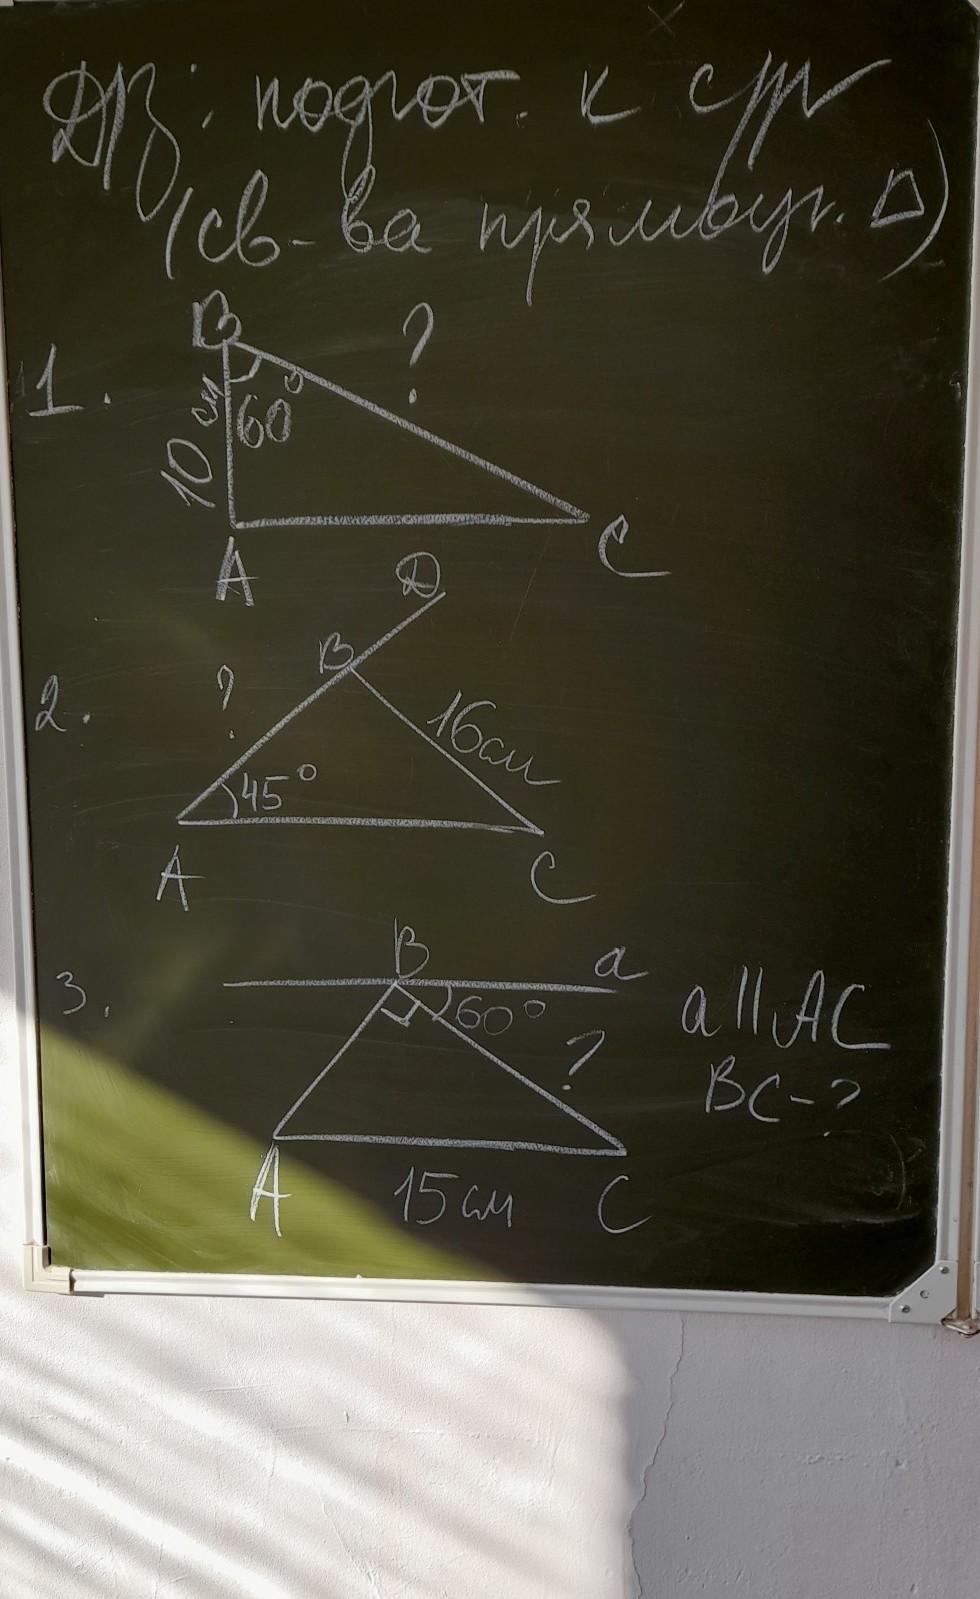 ДЗ: подгот. к с/р
(св-ва прямоуг. Δ)
1.
B
?
10 см
60°
A
C
2.
D
B
?
16см
45°
A
C
3.
B
a
60°
?
a || AC
BC - ?
A
15 см
C